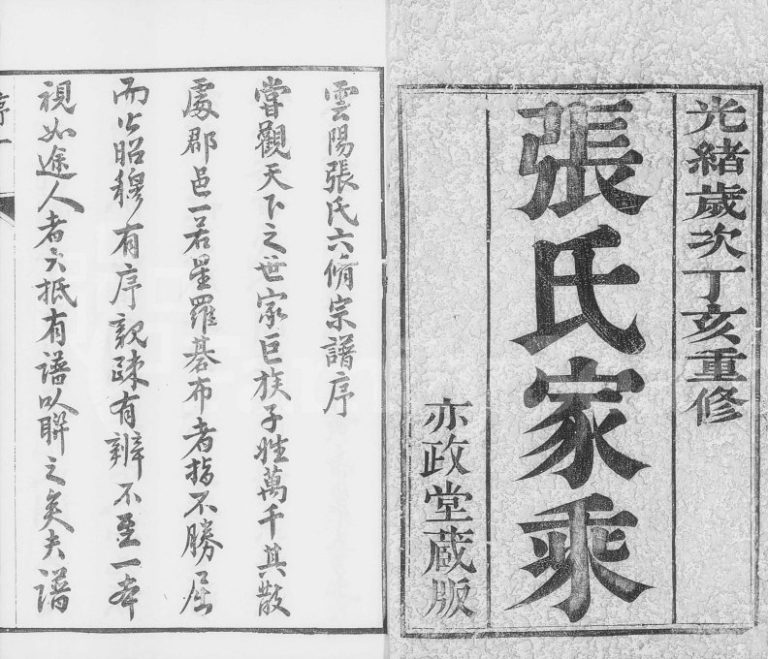 光緒歲次丁亥重修
張氏家乘
亦政堂藏版
雲陽張氏六脩宗譜序
嘗觀天下之世家巨族子姓萬千其散
處郡邑一若星羅碁布者指不勝屈
而公昭穆有序親疎有辨不至一本
視如途人者大抵有譜以聯之矣夫譜
序一